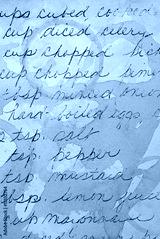 ups cubed cooked
cup diced celery
cup chopped
cup chopped
tbsp. minced onion
hard boiled eggs, c
2 tsp. salt
tsp. pepper
tsp. mustard
bsp. lemon juice
cup mayonnaise